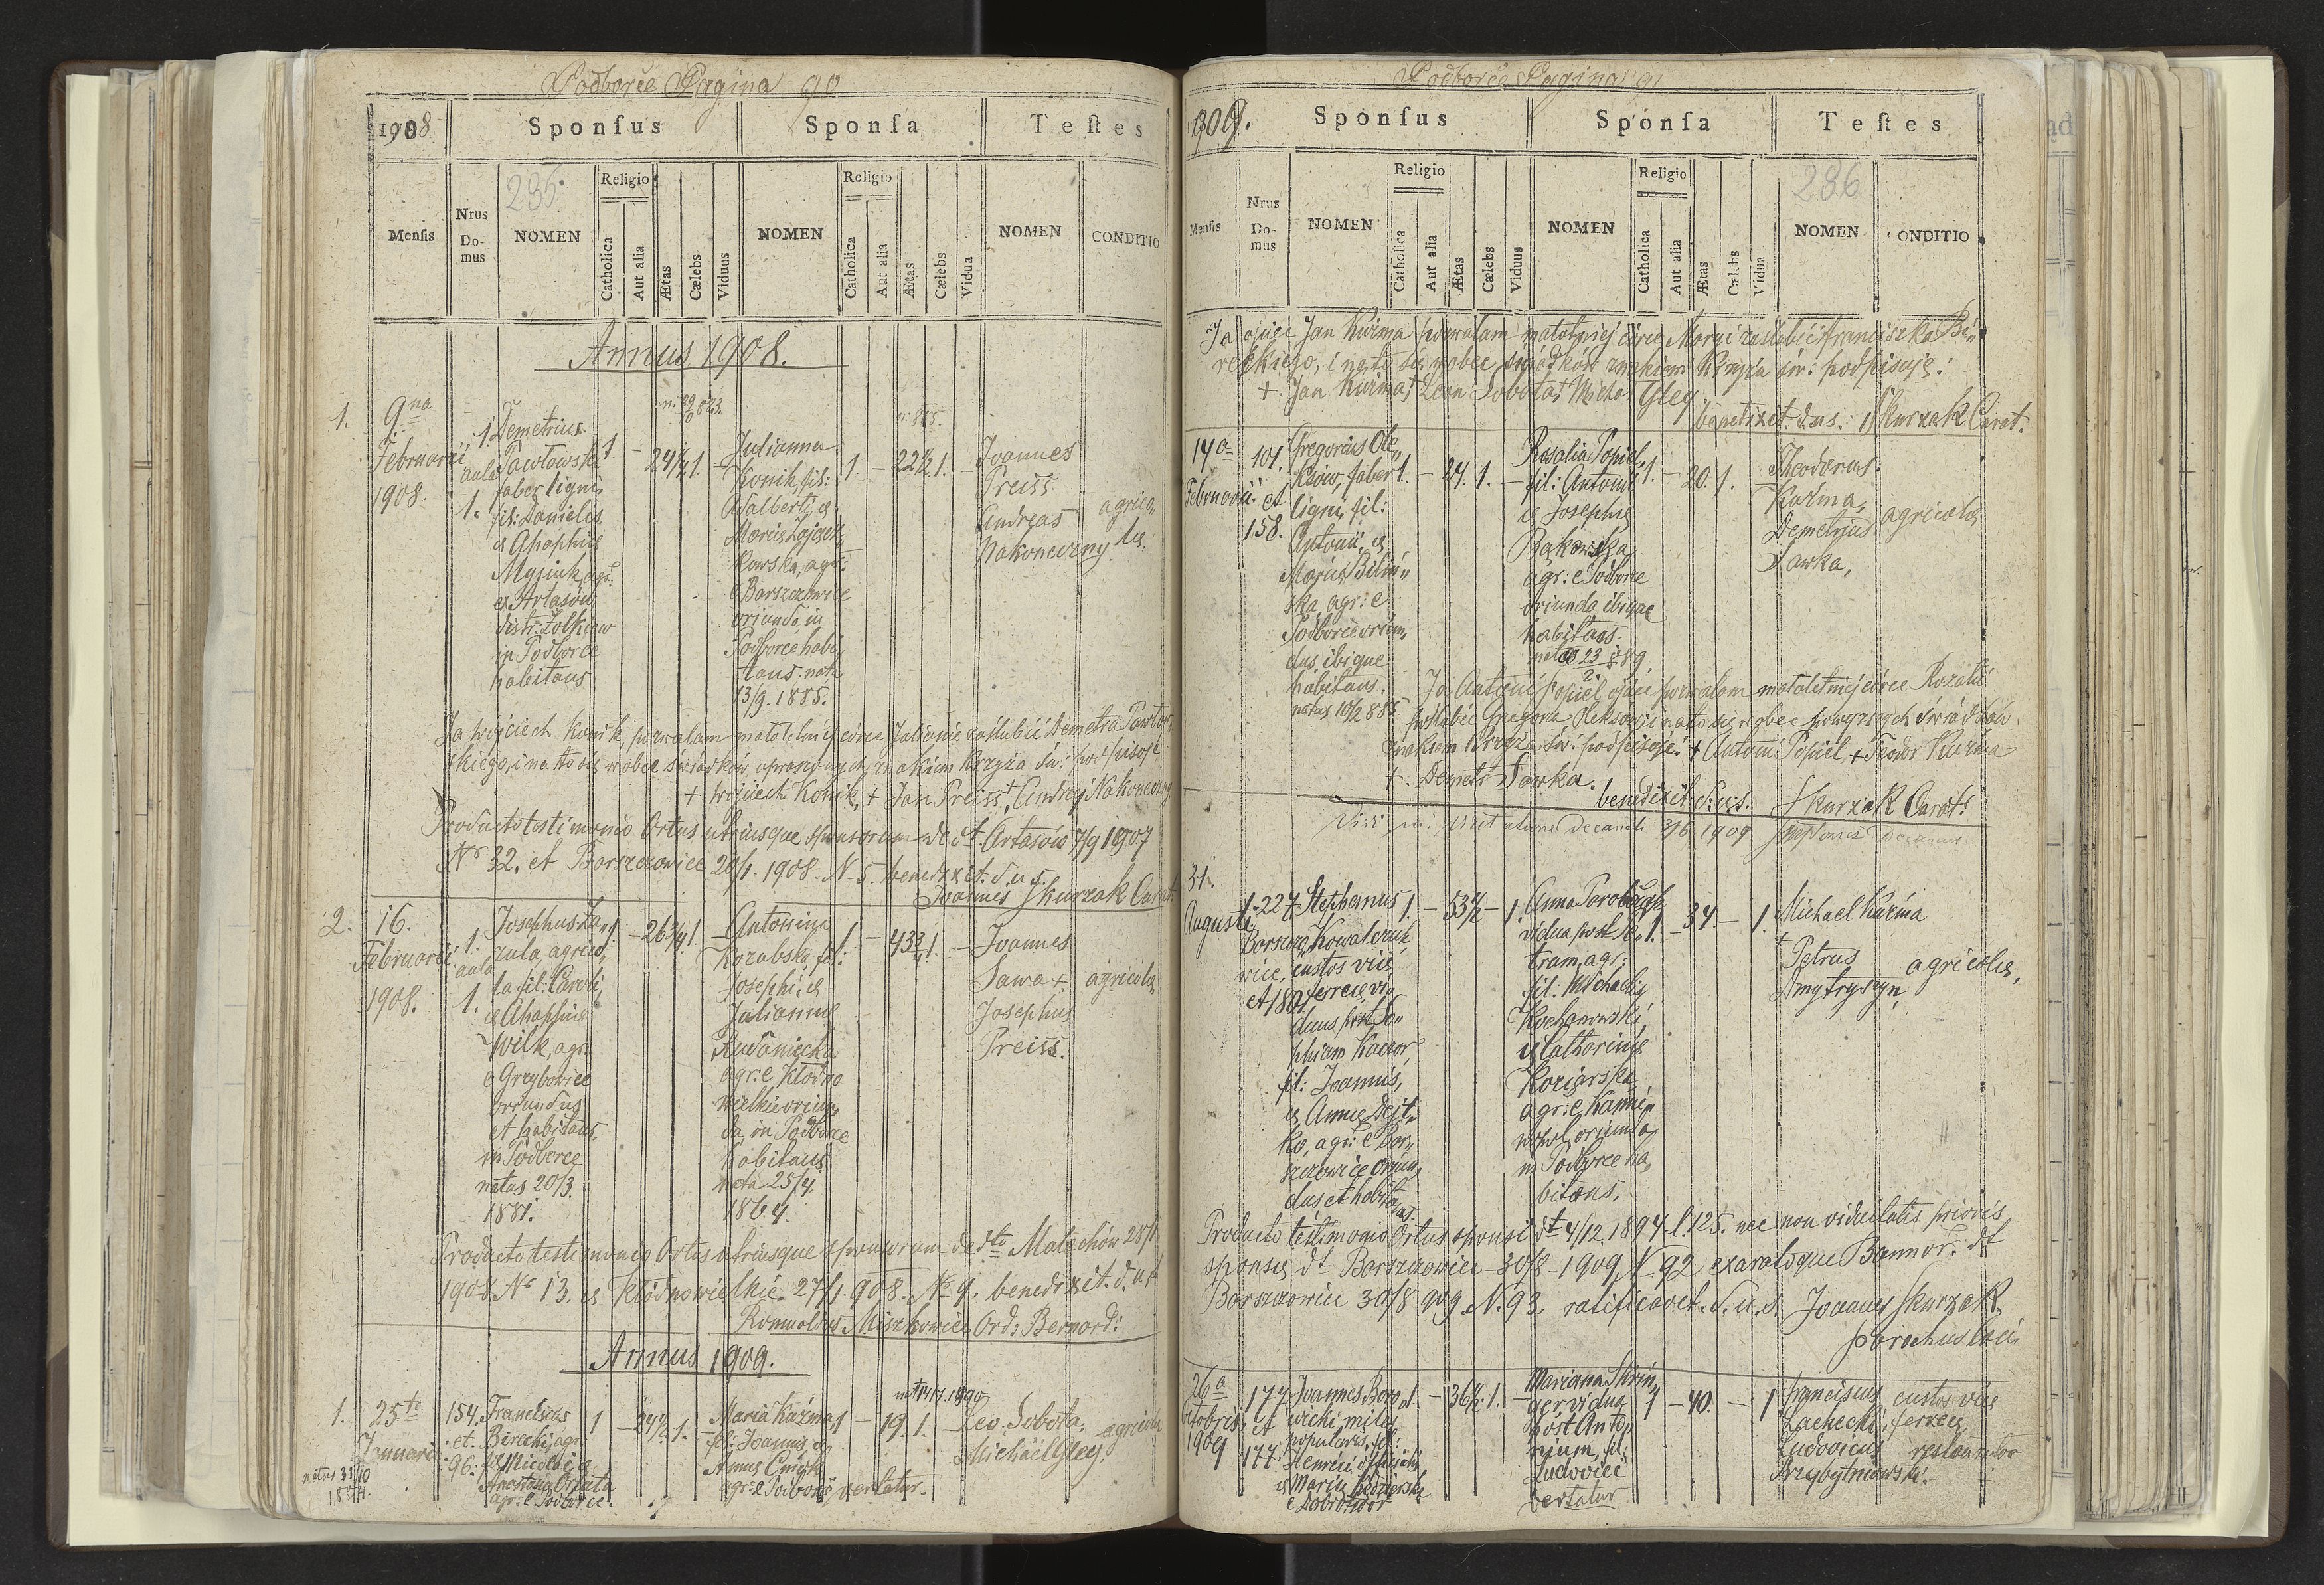 Podborce Pagina 90
1908
Sponsus
Sponsa
Testes
Mensis
Nrus Domus
NOMEN
235.
Religio
Catholica
Aut alia
Ætas
Cælebs
Viduus
NOMEN
Religio
Catholica
Aut alia
Ætas
Cælebs
Vidua
NOMEN
CONDITIO
Annus 1908.
1.
9na
Februarii
1908.
1.
aula
1.
Demetrius
Pawłowski
faber ligni,
fil: Danielis
& Ahaphiæ
Mysiuk, agr:
ex Artasów
distr: Żołkiew
in Podborce
habitans
1.
24½
1.
Julianna
Konik, fil:
Adalberti, &
Mariæ Zającz
kowska, agr:
e Barszczowice
oriunda, in
Podborce habi
tans. nata
13/9. 1885.
1. – 22½ 1. –
Joannes
Preiss.
Andreas
Nakoneczny.
agrico
læ.
Ja Wojciech Konik, pozwalam małoletniej córce Juliannie zaślubić Demetra Pawłow
skiego, i na to się wobec świadków uproszonych, znakiem Krzyża św: podpisuję
+ Wojciech Konik, + Jan Preiss +, Andrzej Nakoneczny
Producto testimonio Ortus utriusque sponsorum de dt. Artasów 7/9 1907
Nr 32. et Barszczowice 20/1. 1908. N. 5. benedixit. d. u. s.
Joannes Skurzak Curat
2.
16.
Februarii
1908.
1.
aula
1.
Josephus Ła
zula, agrico
la fil: Caroli,
& Ahaphiæ
Wilk, agr:
e Grzybowice
oriundus
et habitans
in Podborce
natus 20/3.
1881.
1. – 26¾ 1. –
Antonina
Kozabska fil:
Josephi, &
Juliannæ
Rudaniecka
agr: e Kłodno
wielkie oriun
da, in Podborce
habitans
nata 25/4.
1864.
1 – 43¾ 1. –
Joannes
Sawa +
Josephus
Preiss.
agricolæ
Producto testimonio Ortus utriusque sponsorum de dto Malechów 28/1.
1908. Nr 13. & Kłódno wielkie 27/1. 908. Nr 4. benedixit. d. u. s.
Romualdus Miszkowicz Ord: Bernard:
Annus 1909.
1.
25te
Januarii
154.
et
96.
Franciscus
Birecki, agr:
fil: Nicolai, &
Anastasia
agr: e Podborce.
1 – 24½ 1. –
Maria Kuźma
fil: Joannis, &
Annæ
agr: e Podborce vertatur.
1 – 19. 1. –
Leo. Sobota
Michael Gleg.
agricolæ
Podborce Pagina 91
1909.
Sponsus
Sponsa
Testes
Mensis
Nrus Domus
NOMEN
Religio
Catholica
Aut alia
Ætas
Cælebs
Viduus
NOMEN
Religio
Catholica
Aut alia
Ætas
Cælebs
Vidua
286
NOMEN
CONDITIO
Ja ojciec Jan Kuźma pozwalam małoletniej córce Maryi zaślubić Franciszka Bi„
reckiego, i na to się wobec świadków znakiem Krzyża św: podpisuję:
+ Jan Kuźma, + Leon Sobota, + Michał Gleg
benedixit. d. u. s. Skurzak Curat.
14a
Februarii
101.
et
158.
Gregorius Ole„
ksiow, faber
ligni, fil:
Antonii, &
Mariæ Biliń„
ska, agr: e
Podborce oriun„
dus, ibique
habitans.
natus 10/2 885
1. – 24. 1. –
Rosalia Popiel,
fil: Antonii
& Josephæ
Bakowska,
agr: e Podborce
oriunda ibique
habitans.
nata 23/2 889.
1. – 20. 1.
Theodorus
Kuźma,
Demetrius
Sawka,
agricolæ
Ja Antoni Popiel, ojciec pozwalam małoletniej córce Rozalii
poślubić Gregora Oleksow, i na to się wobec powyższych świadków
znakiem Krzyża św: podpisuję: + Antoni Popiel, + Teodor Kuźma
+. Demetr Sawka.
benedixit d. u. s. Skurzak Curat.
visitatione Decanali 3/6 1909
31.
Augusti
227
Barszczo„
wice
et 181
Stephanus
Kowalczuk,
custos viæ
ferreæ, vi„
duus post So„
phiam Kaczor,
fil: Joannis,
& Annæ Dejt„
ko, agr: e Bar„
szczowice oriun„
dus et habita„
ns.
1. – 53½ – 1.
Anna Parobczak
vidua post Pe„
trum, agr:
fil: Michaelis
Kochanowski,
& Catharinæ
Koziarska
agr: e Kamie„
nopol oriunda
in Podborce ha„
bitans.
1. – 34. – 1.
Michael Kuźma
+
Petrus
Dmytryszyn,
agricolæ,
Producto testimonio Ortus sponsi dt 4/12 1894. l. 125. nec non viduitatis prioris
sponsæ dt Barszczowice 30/8 – 1909. N 92, exaratoque Bannor: dt
Barszczowice 30/8 909. N. 93. ratificavit. d. u. s. Joannes Skurzak
parochus loci
26a
Octobris,
1909
177
et
177.
Joannes Boro„
wicki miles
popularis, fil:
Henrici officialis
& Mariæ Kędzierska
e Dobromior
1. – 36½ 1. –
Marianna Skrin„
ger, vidua
post Anto„
nium, fil:
Ludovici
vertatur
1 – 40. – 1
Franciscus
Lachecki,
Ludovicus
Przybytniowski.
custos viæ
ferreæ,
restaurator